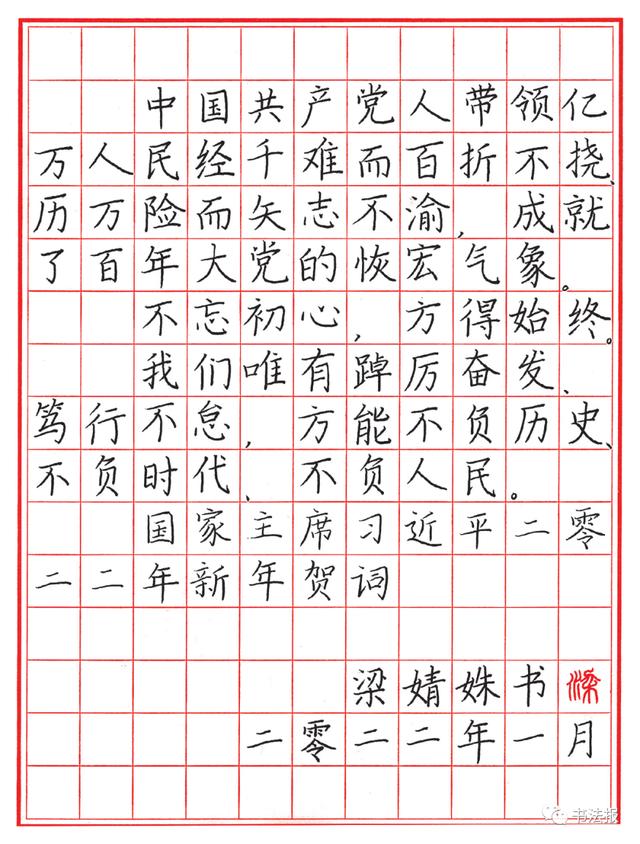 中国共产党人带领亿
万人民经千难而百折不挠、
历万险而矢志不渝，成就
了百年大党的恢宏气象。
不忘初心，方得始终。
我们唯有踔厉奋发、
笃行不怠，方能不负历史、
不负时代、不负人民。
国家主席习近平二零
二二年新年贺词
梁婧姝书
梁
二零二二年一月
书法报